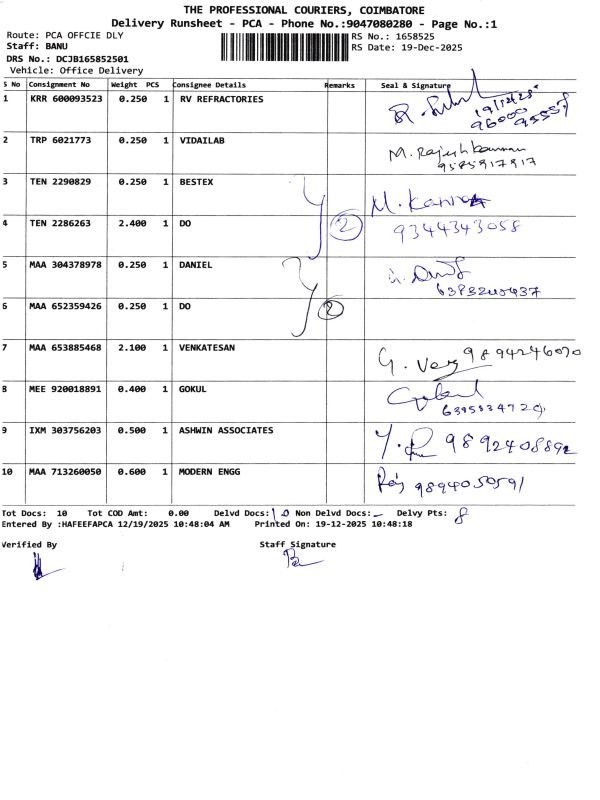 THE PROFESSIONAL COURIERS, COIMBATORE
Delivery Runsheet - PCA - Phone No.:9047080280 - Page No.:1
Route: PCA OFFCIE DLY
Staff: BANU
DRS No.: DCJB165852501
Vehicle: Office Delivery
RS No.: 1658525
RS Date: 19-Dec-2025
S No Consignment No Weight PCS Consignee Details Remarks Seal & Signature
1 KRR 600093523 0.250 1 RV REFRACTORIES 19/12/25
2 TRP 6021773 0.250 1 VIDAILAB M. Rajesh kannan
9585917917
3 TEN 2290829 0.250 1 BESTEX
4 TEN 2286263 2.400 1 DO 2 9344343058
5 MAA 304378978 0.250 1 DANIEL
6 MAA 652359426 0.250 1 DO 2
7 MAA 653885468 2.100 1 VENKATESAN 9894246070
8 MEE 920018891 0.400 1 GOKUL
9 IXM 303756203 0.500 1 ASHWIN ASSOCIATES 9892408892
10 MAA 713260050 0.600 1 MODERN ENGG 9894050591
Tot Docs: 10 Tot COD Amt: 0.00 Delvd Docs: 10 Non Delvd Docs: - Delvy Pts: 8
Entered By :HAFEEFAPCA 12/19/2025 10:48:04 AM Printed On: 19-12-2025 10:48:18
Verified By Staff Signature